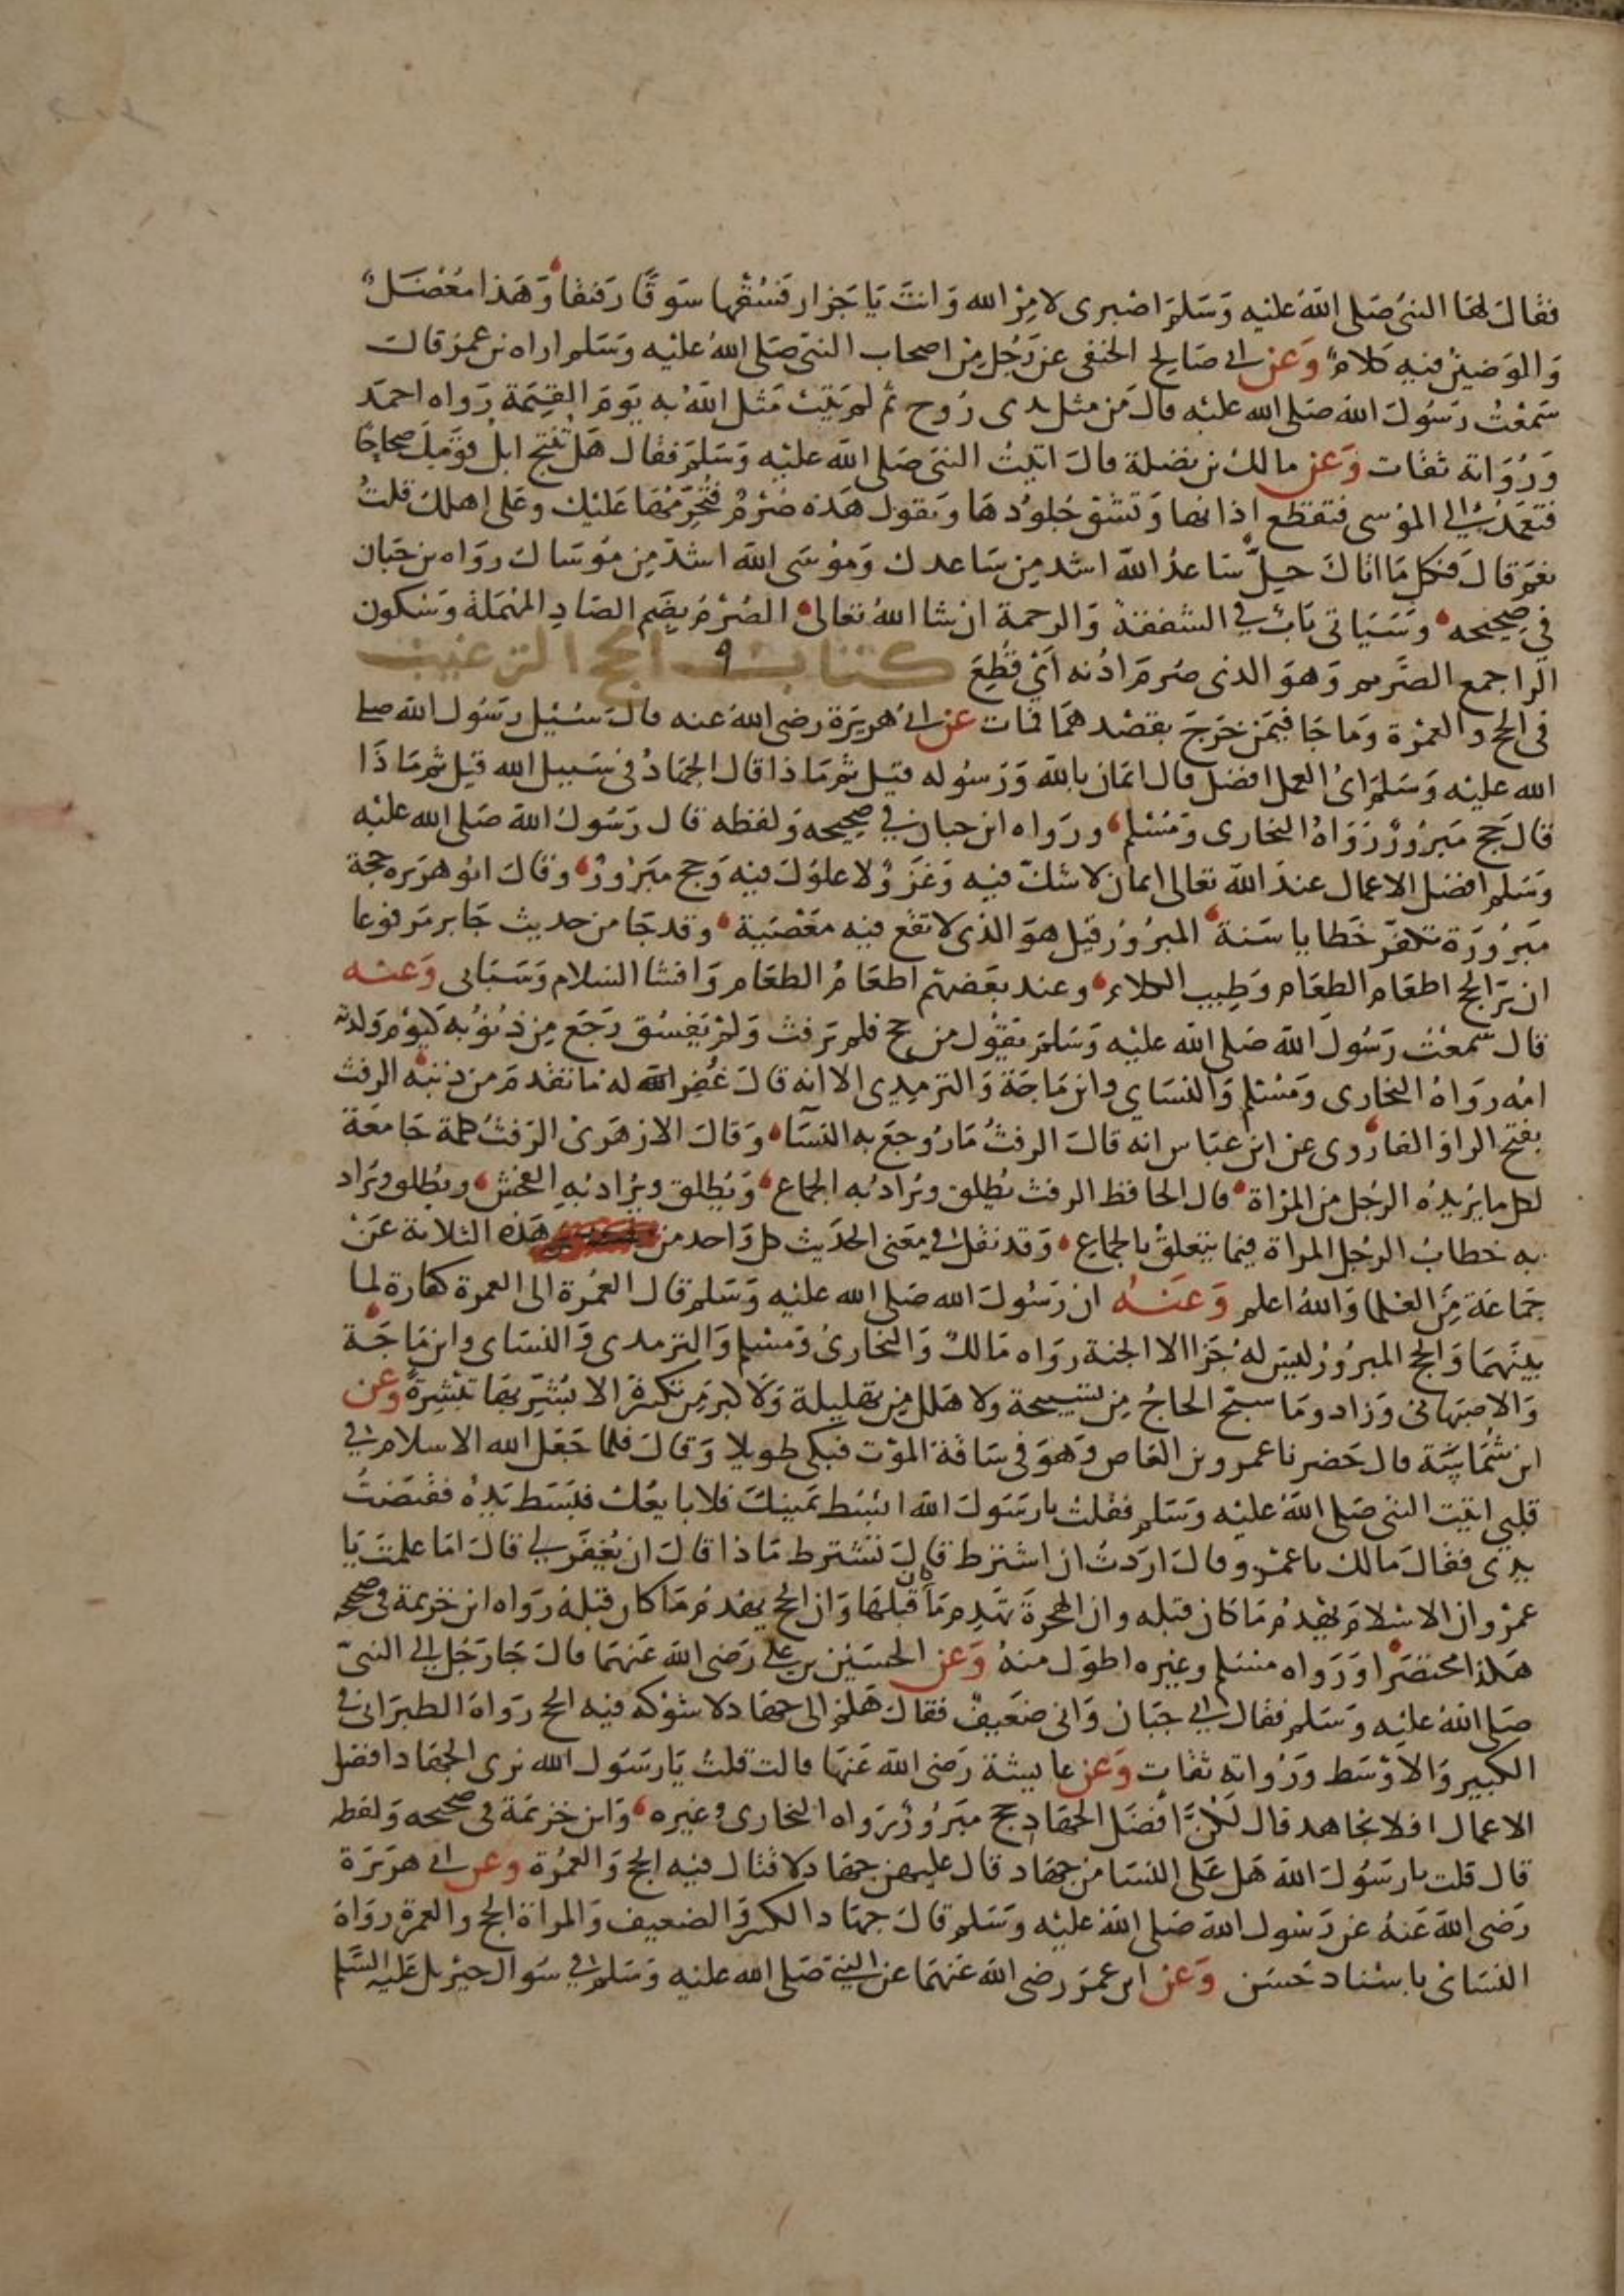 فقال لها النبي صَلى اللهُ عليه وَسَلم اصْبرى لامِر الله وَانتَ يَا جَزار فسُقها سَوقًا رَفيقًا وَهَذا مُعْضَلٌ
وَالوَضين فيه كلامٌ وَعَن ابى صَالح الحنفى عن رَجُل مِن اصحاب النبى صَلى اللهُ عليْه وَسَلم اراه بن عمر قال
سَمعْتُ رَسُولَ اللهَ صَلى الله عليْه قال مَن مثل بذى رُوح ثم لم يَتبْ مَثل اللهُ به يَومَ القِيمَة رَواه احمَد
وَرُوَاته ثقات وَعَن مالك بن نضلة قال اتيتُ النبى صَلى الله عليْه وَسَلم فقال هَل تنتج ابلُ قومِكَ صحاحًا
فتعمَدُ الى الموسى فتقطع اذانها وَتشق جُلودهَا وَتقول هَذه صُرْمٌ فتُحَرّمهَا عَليْك وعلى اهلك قلتُ
نعَم قالَ فكل مَا اتاكَ حِلٌّ سَاعدُ اللهَ اشد مِن سَاعدك وَمُوسَى الله اشدّ مِن مُوسَاك روَاه بن حبَان
فى صحيحه وَسَيَاتى بَابٌ في الشفقة وَالرحمة ان شا اللهُ تعالى الصُرْمُ بضَم الصَادِ المهْمَلة وَسُكون
الرا جمع الصَّريم وَهوَ الذى صُرمَ اذُنه اَىْ قُطِعَ كتاب الحج الترغيب
فى الحج والعمْرة وَمَا جَا فيمَن خَرجَ بقصْد همَا فمات عن ابى هُريرَة رضى اللهُ عنه قالَ سُئِل رسُول الله صلى
الله عليْه وَسَلم اَىُ العمل افضل قال ايمَان بالله وَرَسُوله قيل ثم مَاذا قال الجهَادُ فى سَبيل الله قيل ثم مَاذَا
قالَ حج مَبرُورٌ رَوَاهُ البخارى وَمُسْلم وروَاه ابن حبان في صحيحه وَلفظه قال رَسُولُ اللهَ صَلى الله عليْه
وَسَلم افضل الاعمال عندَ اللهَ تعالى ايمان لا شكّ فيه وَغَزوٌ لا غلوُلَ فيه وَحج مَبرورٌ وَقالَ ابو هرَيره حجة
مَبرُورَة تكفر خَطايا سَنة المبرُورُ قيل هوَ الذى لا تقع فيه مَعْصيَة وقد جَا من حديث جَابر مَرفوعا
ان برّ الحج اطعَام الطعَام وَطِيب الكلام وعند بعَضهم اطعَامُ الطعَام وَافشا السَلام وَسَيَاتى وَعنه
قال سَمعْتُ رَسُولَ اللهَ صَلى الله عليْه وَسَلم يَقول من حج فلم يرفث وَلم يَفسُق رَجَع مِن ذنوبه كيَوم وَلدته
امُه رَوَاهُ البخارى وَمُسْلم وَالنسَاي وابن مَاجَة وَالترمِذى الا انه قالَ غُفر الله له مَا تقدمَ من ذنبه الرفث
بفتح الرا وَالفا رُوى عن ابن عبَاس انه قالَ الرفثُ مَا رُوجعَ به النسَا وَقالَ الازهَرىُ الرَفثُ كلمة جَامعَة
لكل ما يرُيدُه الرجُل من المرْاة قال الحافظ الرفث يُطلق وَيرَادُ به الجماع وَيُطلق وَيرُاد به الفحش ويُطلق ويُراد
به خطابُ الرجُل المراة فيما يتعلق بالجماع وَقد نقل فى مَعنى الحدَيث كل وَاحد من هَذه الثلاثة عَنْ
جَمَاعَة مِن العُلما وَاللهُ اعلم وَعَنهُ ان رَسُولَ الله صَلى الله عليه وَسَلم قال العُمْرة الى العمرة كفارة لما
بينَهمَا وَالحج المبرُورُ ليسَ لهُ جَزا الا الجنة روَاه مَالكٌ وَالبخارىُ وَمسْلم وَالترمذى وَالنسَاى وابن مَاجَة
وَالاصبَهانى وَزاد ومَا سبّح الحاجُ مِن تسبيحة ولا هَلل مِن تهليلة وَلا كبَر مِن تكبيرة الا بُشّرَ بهَا تبْشِرةً وعن
ابن شُمَاسَة قال حَضرنا عمرو بن العَاص وَهوَ فى سيَاقة المَوت فبكى طويلا وَقالَ فلما جَعَل الله الاسلام في
قلبى اتيت النبى صَلى اللهُ عليْه وَسَلم فقلتُ يارسَولَ اللهَ ابسُط يمَينكَ فلا بايعُك فبَسَط يَدهُ فقبَضتُ
يدى فقالَ مَالك يا عمْرو قالَ ارَدتُ ان اشترط قالَ تشترط مَاذا قالَ ان يُغفَر لى قالَ امَا علمتَ يَا
عمْرو ان الاسْلامَ يهْدمُ مَا كان قبله وان الهجرةَ تهدِم مَا كان قبلهَا وَان الحج يهْدمُ مَا كان قبلهُ روَاه ابن خزيمة فى صحيحه
هَكذا مختصَرًا وَرَواه مسْلم وغيره اطوَل منهُ وَعَن الحسَين بن على رَضى الله عَنهمَا قالَ جَا رَجُل الى النبىّ
صَلى اللهُ عليْه وَسَلم فقال انى جبَان وَانى ضَعيفٌ فقالَ هَلم الى جهَاد لا شوْكه فيه الحج روَاهُ الطبَرانى فى
الكبير وَالاوْسَط وَرُواته ثقات وَعَن عَايشة رَضى اللهَ عَنهَا قالت قلتُ يَارسَول الله نرى الجهَاد افضل
الاعمال افلا نجَاهد قال لكُنَّ افضَل الجهَاد حج مبَرُورٌ رَواه البخارى وغيره وَابن خزيمَة فى صحيحه وَلفظه
قال قلت يارسَولَ اللهَ هَل عَلى النسَا من جهَاد قال عليهن جهَاد لا قتال فيه الحج وَالعمْرة وعن ابى هرَيرَة
رَضى اللهَ عَنهُ عن رَسُول اللهَ صَلى اللهُ عليْه وَسَلم قالَ جهَاد الكبير وَالضعيف وَالمراة الحج والعمرة روَاهُ
النسَاى باسْناد حَسَن وَعَن ابن عمَرَ رضى الله عَنهمَا عن النبى صَلى الله عليه وَسَلم في سُوال جبريل عَليه السَّلم